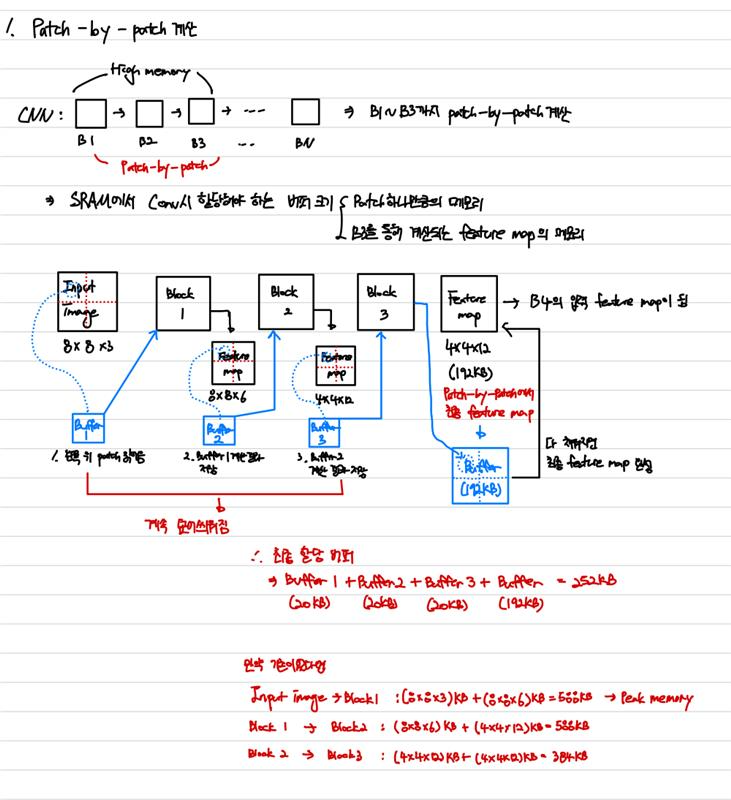 1. Patch-by-patch 계산
High memory
CNN : → → → ... ⇒ B1~B3까지 patch-by-patch 계산
B1 B2 B3 ... BN
Patch-by-patch
⇒ SRAM에서 Conv시 할당해야 하는 버퍼 크기 Patch 하나만큼의 메모리
B3을 통해 계산되는 feature map의 메모리
Input image
Block 1
Block 2
Block 3
Feature map
→ B4의 입력 feature map이 됨
8×8×3
Feature map
8×8×6
Feature map
4×4×12
4×4×12
(192KB)
Patch-by-patch에서
최종 feature map
Buffer 1
Buffer 2
Buffer 3
Buffer
(192KB)
다 채워지면
최종 feature map 완성
1. 왼쪽 위 patch 할당
2. Buffer 1 계산 결과
저장
3. Buffer 2
계산 결과 저장
계속 덮어씌워짐
∴ 최종 할당 버퍼
⇒ Buffer 1 + Buffer 2 + Buffer 3 + Buffer = 252KB
(20KB) (20KB) (20KB) (192KB)
만약 기존이었다면
Input image → Block1 : (8×8×3)KB + (8×8×6)KB = KB → Peak memory
Block 1 → Block2 : (8×8×6)KB + (4×4×12)KB = KB
Block 2 → Block3 : (4×4×12)KB + (4×4×12)KB = 384KB